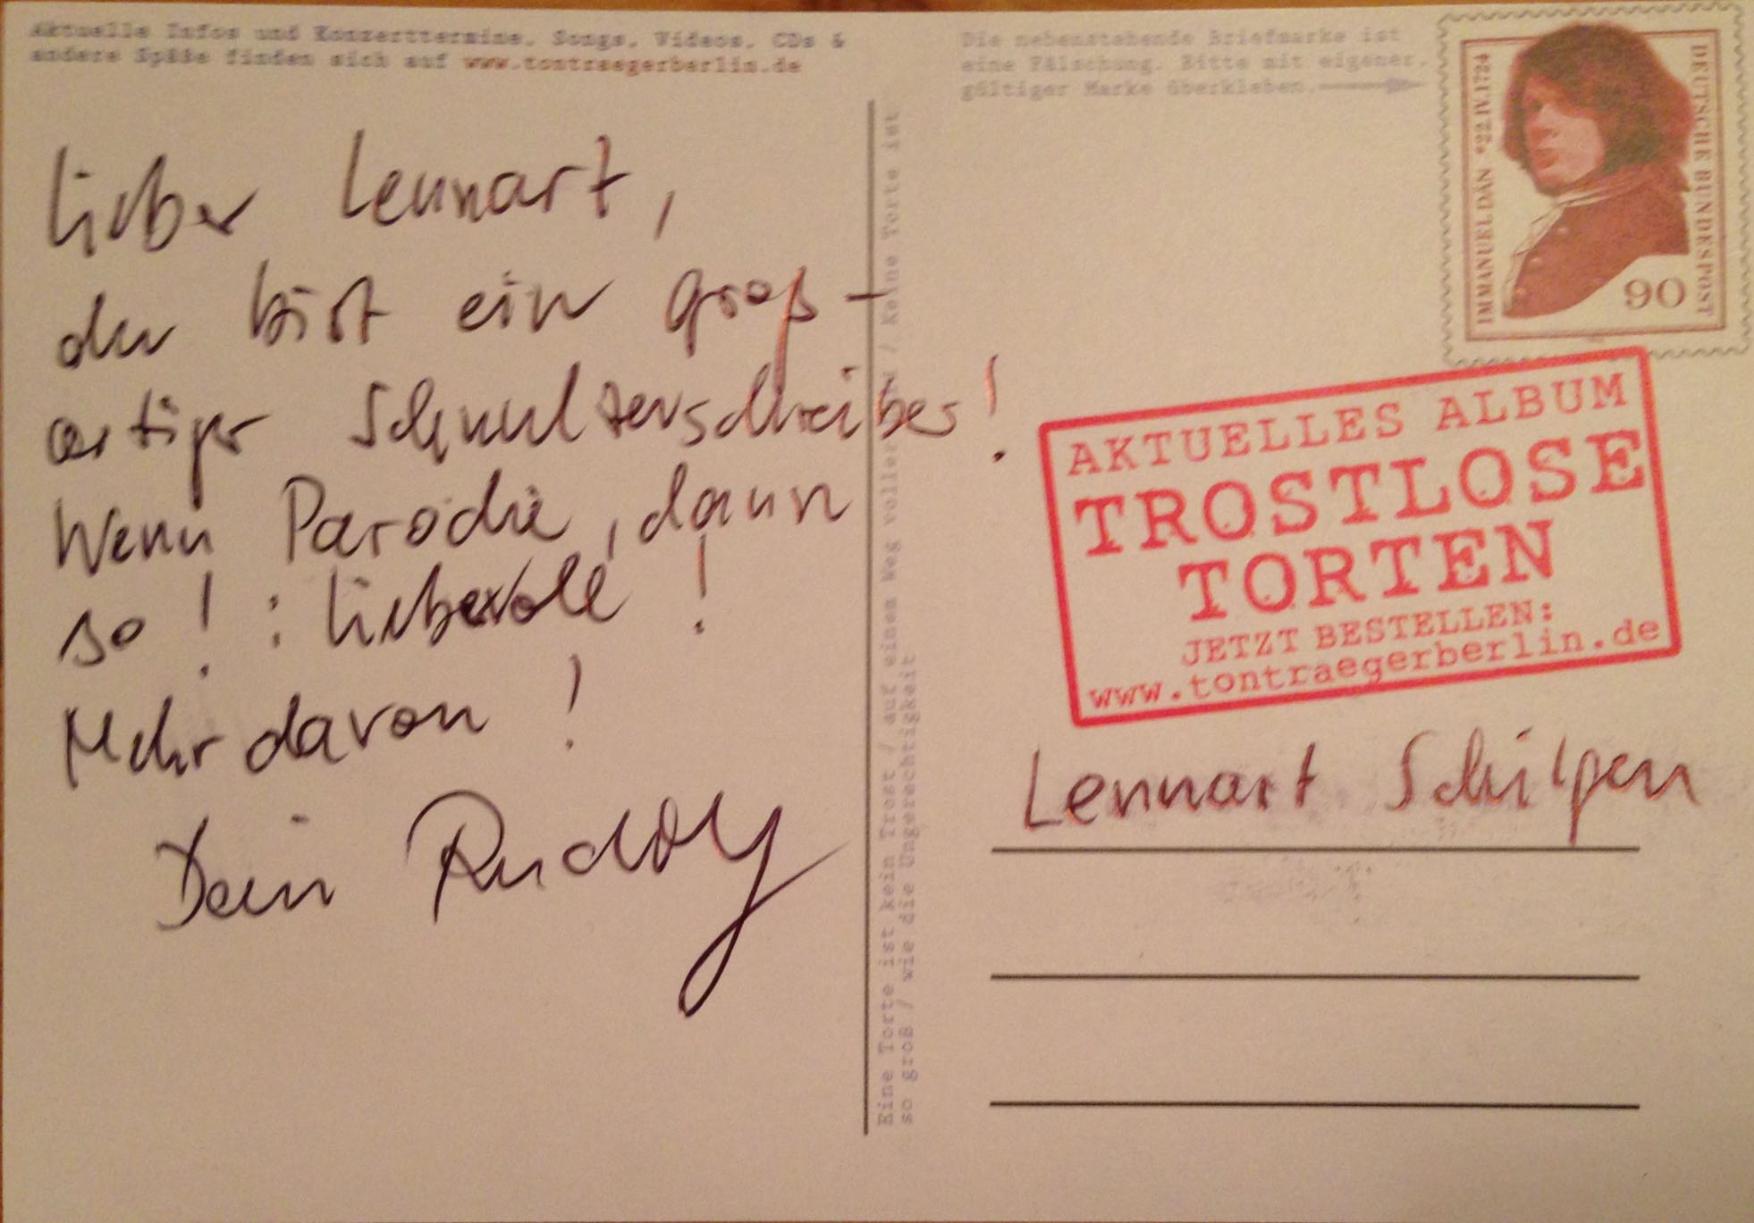 Aktuelle Infos und Konzerttermine, Songs, Videos, CDs &
andere Späße finden sich auf www.tontraegerberlin.de
Lieber Lennart,
du bist ein groß-
artiger Schnulzenschreiber!
Wenn Parodie, dann
so! : liebevoll!
Mehr davon!
Dein Rudolf
Eine Torte ist kein Trost / auf einem Weg voller / Keine Torte ist
so groß / wie die Ungerechtigkeit
Die nebenstehende Briefmarke ist
eine Fälschung. Bitte mit eigener,
gültiger Marke überkleben.
IMMANUEL DAN *22.IV.1724
DEUTSCHE BUNDESPOST
90
AKTUELLES ALBUM
TROSTLOSE
TORTEN
JETZT BESTELLEN:
www.tontraegerberlin.de
Lennart Schilgen